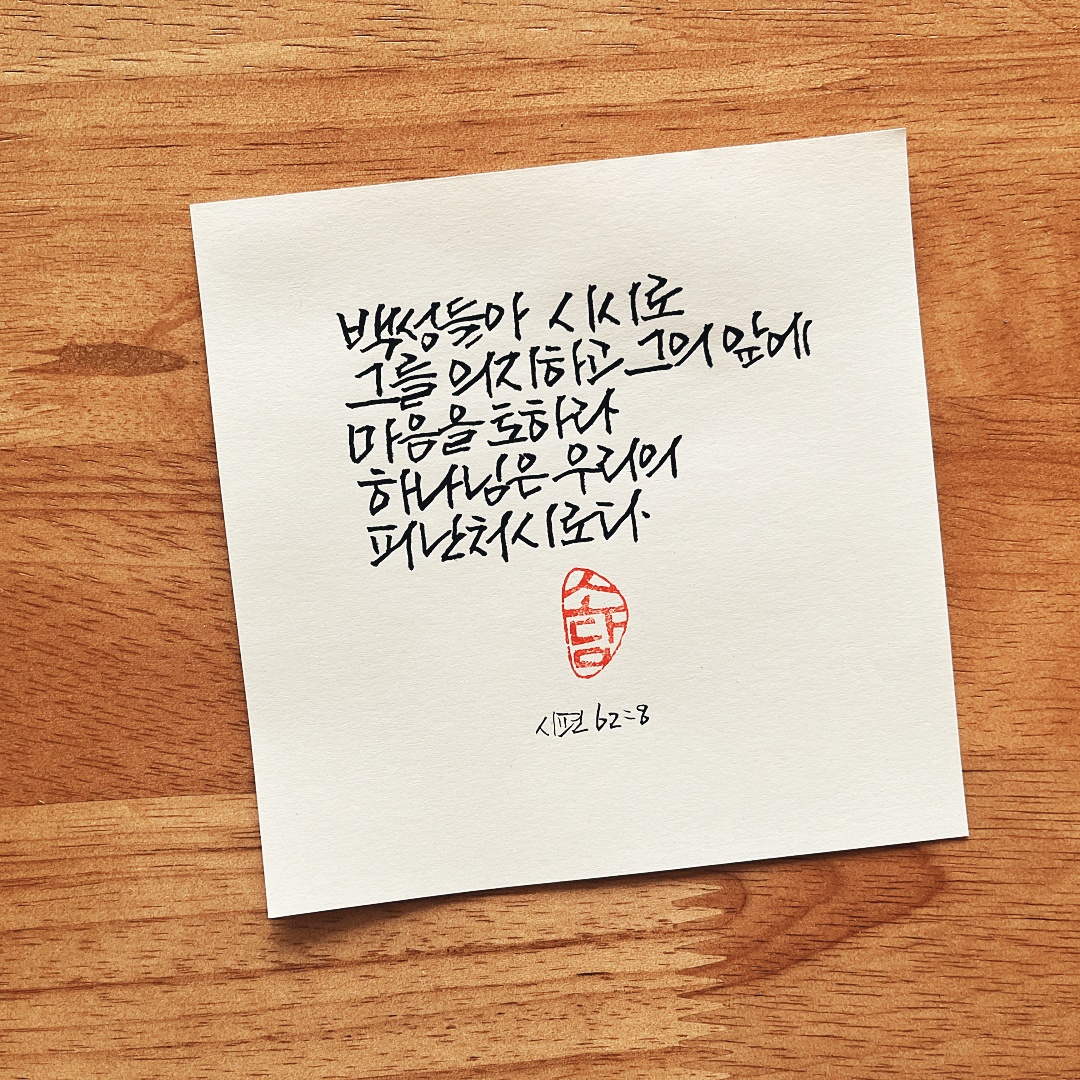 백성들아 시시로
그를 의지하고 그의 앞에
마음을 토하라
하나님은 우리의
피난처시로다.
소담
시편 62:8